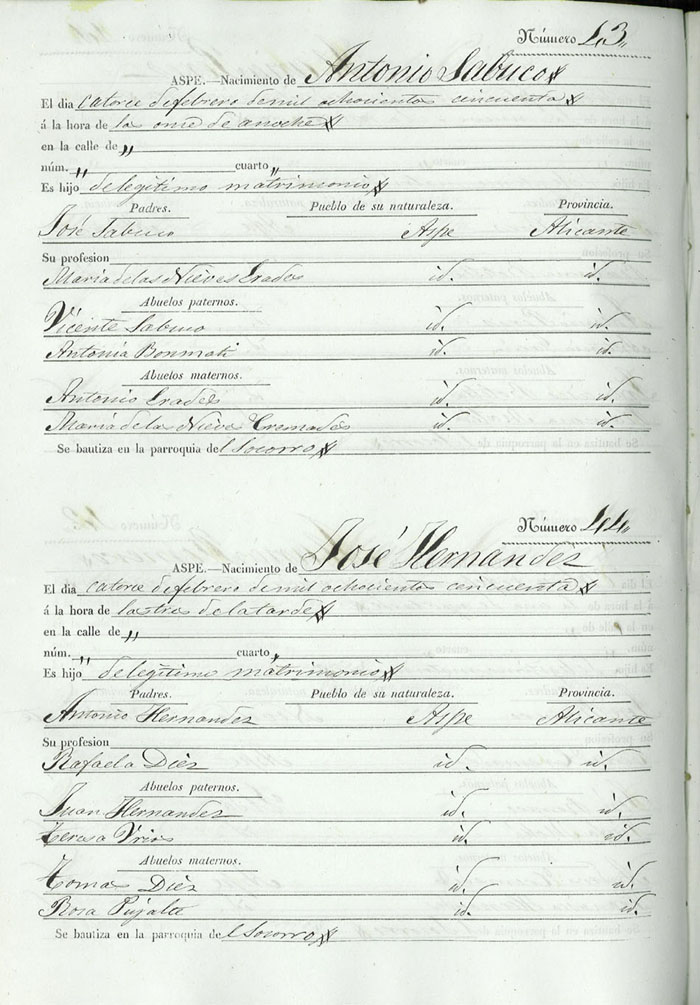 Número 43.,
ASPE.—Nacimiento de Antonio Sabuco
El dia catorce de febrero de mil ochocientos cincuenta
á la hora de la once de anoche
en la calle de „
núm. „ cuarto „
Es hijo de legitimo matrimonio
Padres. Pueblo de su naturaleza. Provincia.
José Sabuco Aspe Alicante
Su profesion
Maria de las Nieves id. id.
Abuelos paternos.
Vicente Sabuco id. id.
Antonia Bonmati id. id.
Abuelos maternos.
Antonio id. id.
Maria de la Nieves Cremades id. id.
Se bautiza en la parroquia del Socorro
Número 44.,
ASPE.—Nacimiento de José Hernandez
El dia catorce de febrero de mil ochocientos cincuenta
á la hora de las tres de la tarde
en la calle de „
núm. „ cuarto „
Es hijo de legitimo matrimonio
Padres. Pueblo de su naturaleza. Provincia.
Antonio Hernandez Aspe Alicante
Su profesion
Rafaela Diez id. id.
Abuelos paternos.
Juan Hernandez id. id.
Teresa id. id.
Abuelos maternos.
Tomas Diez id. id.
Rosa Pujalte id. id.
Se bautiza en la parroquia del Socorro